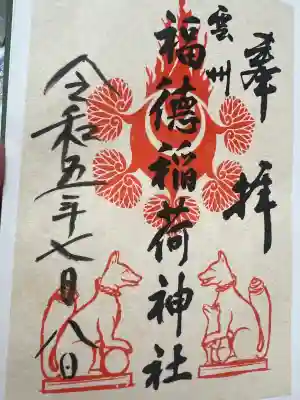 奉拝
雲州
福德稲荷神社
令和五年七月八日